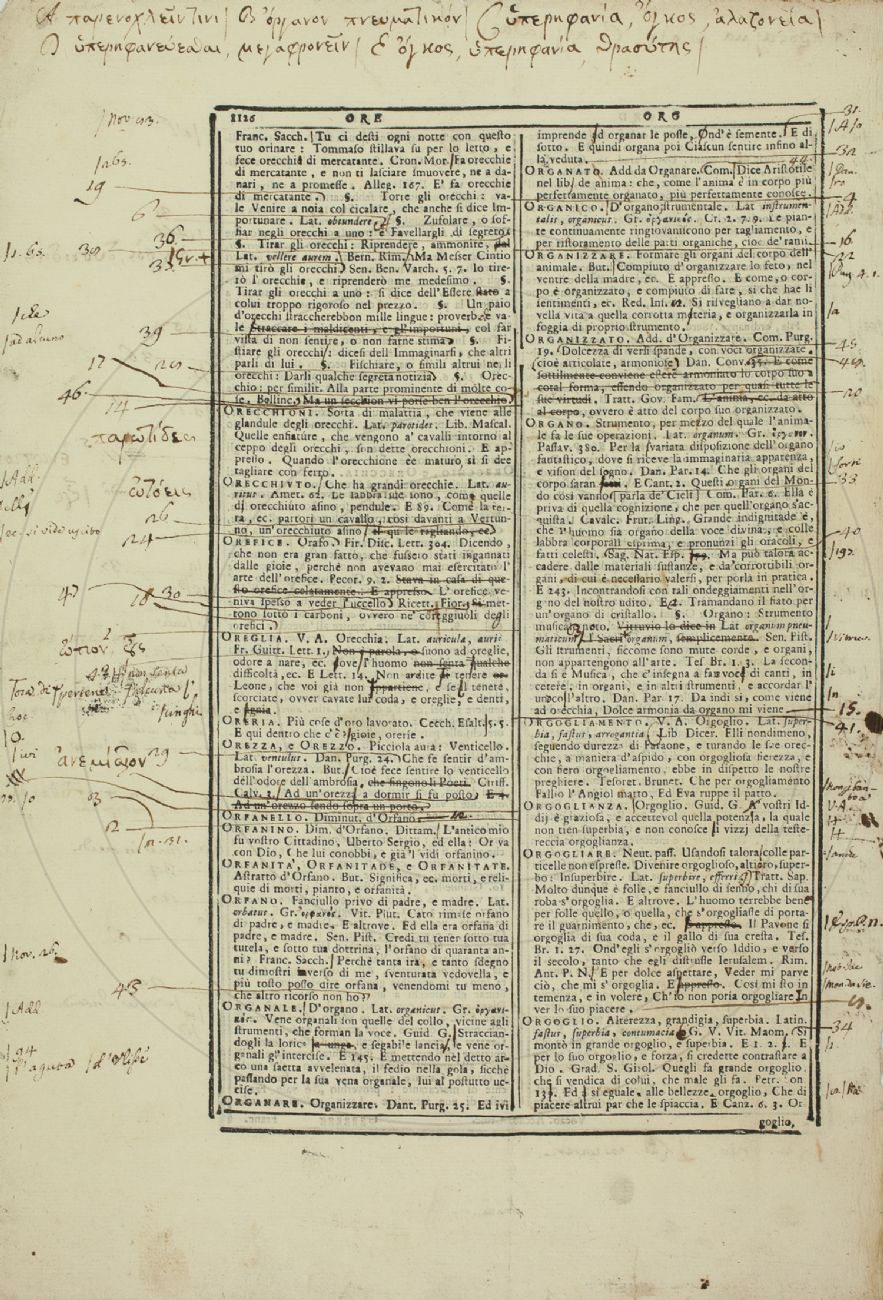 A παρενοχλεῖν τινι / B ὄργανον πνευματικόν / C ὑπερηφανία, ὄγκος, ἀλαζονεία /
D ὑπερηφανεύεσθαι, μεγαφρονεῖν / E ὄγκος, ὑπερηφανία, θρασύτης /
1126 ORE
Franc. Sacch. Tu ci desti ogni notte con questo
tuo orinare: Tommaso stillava su per lo letto, e
fece orecchie di mercatante. Cron. Mor. Fa orecchie
di mercatante, e non ti lasciare smuovere, ne a da-
nari, ne a promesse. Alleg. 167. E' fa orecchie
di mercatante. §. Torre gli orecchi: va-
le Venire a noia col cicalare, che anche si dice Im-
portunare. Lat. obtundere. §. Zufolare, o sof-
fiar negli orecchi a uno: è Favellargli di segreto
§. Tirar gli orecchi: Riprendere, ammonire,
Lat. vellere aurem. Bern. Rim. Ma Messer Cintio
mi tirò gli orecchi Sen. Ben. Varch. 5. 7. Io tire-
rò l'orecchie, e riprenderò me medesimo. §.
Tirar gli orecchi a uno: si dice dell'Essere stato a
colui troppo rigoroso nel prezzo. §. Un paio
d'orecchi straccherebbon mille lingue: proverb. e va-
le Straccare i maldicenti, e gl'importuni, col far
vista di non sentire, o non farne stima §. Fi-
stiare gli orecchi: dicesi dell'Immaginarsi, che altri
parli di lui. §. Fischiare, o simili altrui ne li
orecchi: Darli qualche segreta notizia §. Orec-
chio: per similit. Alla parte prominente di molte co-
se. Bellinc. Ma un secchion vi porse ben l'orecchio
ORECCHIONI. Sorta di malattia, che viene alle
glandule degli orecchi. Lat. parotides. Lib. Mascal.
Quelle enfiature, che vengono a' cavalli intorno al
ceppo degli orecchi, si dette orecchioni. E ap-
presso. Quando l'orecchione è maturo si si dee
tagliare con ferro.
ORECCHIUTO. Che ha grandi orecchie. Lat. au-
ritus. Amet. 62. Le labbra sue sono, come quelle
d'orecchiuto asino, pendule. E 89. Come la ter-
ra, ec. partorì un cavallo, così davanti a Vertun-
no, un'orecchiuto asino il qu le rigliando, ec.
OREFICE. Orafo. Fir. Disc. Lett. 304. Dicendo,
che non era gran fatto, che fussero stati ingannati
dalle gioie, perchè non avevano mai esercitato l'
arte dell'orefice. Pecor. 9. 2. Stava in casa di que-
sto orefice celatamente. E appresso. L'orefice ve-
niva spesso a veder l'uccello Ricett. Fior. Si met-
tono sotto i carboni, ovvero ne' coreggiuoli degli
orefici.
OREGLIA. V. A. Orecchia. Lat. auricula, auris.
Fr. Guitt. Lett. 1. Non j parola, o suono ad oreglie,
odore a nare, ec. dove l'huomo non senta qualche
difficoltà, ec. E Lett. 14. Non ardite di tenere
Leone, che voi già non appartiene, e se il teneta,
scorciate, ovver cavate lui coda, e oreglie, e denti,
e
ORERIA. Più cose d'oro lavorato. Cecch. Esalt. 5. 5.
E qui dentro che c'è? gioie, orerie.
OREZZA, e OREZZO. Picciola aura: Venticello.
Lat. ventulus. Dan. Purg. 24. Che fe sentir d'am-
brosia l'orezza. But. Cioè fece sentire lo venticello
dell'odore dell'ambrosia, che fingono li Poeti. Ciriff.
Calv. 3. Ad un'orezza a dormir si fu posto. E 4.
Ad un'orezzo sendo sopra un porto.
ORFANELLO. Diminut. d'Orfano.
ORFANINO. Dim. d'Orfano. Dittam. L'antico mio
fu vostro Cittadino, Uberto Sergio, ed ella: Or va
con Dio, Che lui conobbi, e già'l vidi orfanino.
ORFANITÀ, ORFANITADE, e ORFANITATE.
Astratto d'Orfano. But. Significa, ec. morti, e reli-
quie di morti, pianto, e orfanità.
ORFANO. Fanciullo privo di padre, e madre. Lat.
orbatus. Gr. ὀρφανός. Vit. Plut. Cato rimase orfano
di padre, e madre. E altrove. Ed ella era orfana di
padre, e madre. Sen. Pist. Credi tu tener sotto tua
tutela, e sotto tua dottrina, l'orfano di quaranta an-
ni? Franc. Sacch. Perchè tanta ira, e tanto sdegno
tu dimostri inverso di me, sventurata vedovella, e
più tosto posso dire orfana, venendomi tu meno,
che altro ricorso non ho?
ORGANALE. D'organo. Lat. organicus. Gr. ὀργανι-
κός. Vene organali son quelle del collo, vicine agli
strumenti, che forman la voce. Guid G. Straccian-
dogli la lorica la unga, e segabil'e lancia, e vene or-
ganali gl'intercise. E 145. E mettendo nel detto ar-
co una saetta avvelenata, il fedio nella gola, sicchè
passando per la sua vena organale, lui al postutto uc-
cise.
ORGANARE. Organizzare. Dant. Purg. 25. Ed ivi
ORG
imprende ad organar le posse, Ond'è semente. E di
sotto. E quindi organa poi Ciascun sentire infino al-
la veduta.
ORGANATO. Add da Organare. Com. Dice Aristotile
nel lib. de anima: che, come l'anima è in corpo più
perfettamente organato, più perfettamente conosce.
ORGANICO. D'organo; strumentale. Lat instrumen-
talis, organicus. Gr. ὀργανικός. Cr. 2. 7. 9. Le pian-
te continuamente ringiovaniscono per tagliamento, e
per ristoramento delle parti organiche, cioè de' rami.
ORGANIZZARE. Formare gli organi del corpo dell'
animale. But. Compiuto d'organizzare lo feto, nel
ventre della madre, ec. E appresso. E come, o cor-
po è organizzato, e compiuto di fare, sì che hae li
sentimenti, ec. Red. Ins. 12. Si risvegliano a dar no-
vella vita a quella corrotta materia, e organizzarla in
foggia di proprio strumento.
ORGANIZZATO. Add. d'Organizzare. Com. Purg.
19. Dolcezza di versi spande, con voci organizzate.
(cioè articolate, armoniose) Dan. Conv. 37. E come
sottilmente conviene essere armoniato lo corpo suo a
cotal forma, essendo organizzato per quasi tutte le
sue virtudi. Tratt. Gov. Fam. L'anima, ec. da atto
al corpo, ovvero è atto del corpo suo organizzato.
ORGANO. Strumento, per mezzo del quale l'anima-
le fa le sue operazioni. Lat. organum. Gr. ὄργανον.
Passav. 380. Per la svariata disposizione dell'organo
fantastico, dove si riceve la immaginaria apparenza,
e vision del sogno. Dan. Par. 14. Che gli organi del
corpo saran forti. E Cant. 2. Questi organi del Mon-
do così vanno (parla de'Cieli) Com. Par. 6. Ella è
priva di quella cognizione, che per quell'organo s'ac-
quista. Cavalc. Frut. Ling. Grande indignitade è,
che l'huomo sia organo della voce divina, e colle
labbra corporali esprima, e pronunzi gli oracoli, e
fatti celesti. Sag. Nat. Esp. Ma può talora ac-
cadere dalle materiali sustanze, e da'corrottibili or-
gani, di cui è necessario valersi, per porla in pratica.
E 243. Incontrandosi con tali ondeggiamenti nell'or-
g no del nostro udito. E Tramandano il fiato per
un'organo di cristallo. §. Organo: Strumento
musicale noto. Vitruvio lo dice in Lat organum pneu-
maticum. I Sacri organum, semplicemente. Sen. Pist.
Gli strumenti, siccome sono mute corde, e organi,
non appartengono all'arte. Tes Br. 1. 3. La secon-
da si è Musica, che c'insegna a far voce di canti, in
cetere, in organi, e in altri strumenti, e accordar l'
uno coll'altro. Dan. Par 17. Da indi sì, come viene
ad orecchia, Dolce armonia da organo mi viene.
ORGOGLIAMENTO. V. A. Orgoglio. Lat. super-
bia, fastus, arrogantia. Lib Dicer. Elli nondimeno,
seguendo durezza di Faraone, e turando le sue orec-
chie, a maniera d'aspido, con orgogliosa fierezza, e
con fiero orgogliamento, ebbe in dispetto le nostre
preghiere. Tesoret. Brunet. Che per orgogliamento
Fallìo l'Angiol matto, Ed Eva ruppe il patto.
ORGOGLIANZA. Orgoglio. Guid. G. A' vostri Id-
dij è graziosa, e accettevol quella potenzia, la quale
non tien superbia, e non conosce i vizzj della teste-
reccia orgoglianza.
ORGOGLIARE. Neut. pass. Usandosi talora colle par-
ticelle non espresse. Divenire orgoglioso, altiero, super-
bo: Insuperbire. Lat. superbire, efferri Tratt. Sap.
Molto dunque è folle, e fanciullo di senno, chi di sua
roba s'orgoglia. E altrove. L'huomo terrebbe bene
per folle quello, o quella, che s'orgogliasse di porta-
re il guarnimento, che, ec. E appresso. Il Pavone si
orgoglia di sua coda, e il gallo di sua cresta. Tes.
Br. 1. 27. Ond'egli s'orgogliò verso Iddio, e verso
il secolo, tanto che egli distrusse Ierusalem. Rim.
Ant. P. N. E per dolce aspettare, Veder mi parve
ciò, che mi s'orgoglia. E appresso. Così mi sto in
temenza, e in volere, Ch'io non poria orgogliare In
ver lo suo piacere.
ORGOGLIO. Alterezza, grandigia, superbia. Latin.
fastus, superbia, contumacia G. V. Vit. Maom. Si
montò in grande orgoglio, e superbia. E 1. 2. 1. E
per lo suo orgoglio, e forza, si credette contrastare a
Dio. Grad. S. Girol. Quegli fa grande orgoglio,
che si vendica di colui, che male gli fa. Petr. on
131. Ed è sì eguale, alle bellezze orgoglio, Che di
piacere altrui par che le spiaccia. E Canz. 6. 3. Or
goglio,
19
6
36
30
39
17
46
14
παρωτίδες
ὠτόεις
26
24
47
18
30
ὠτίον
29
ἀνεμιαῖον
43
44
4
16
22
45
20
33
40
15.
41.
34